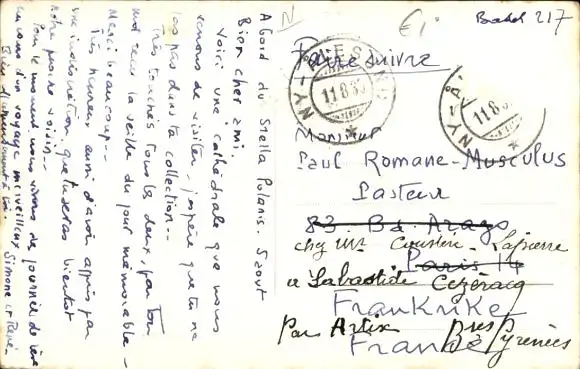 A bord du Stella Polaris. 5 aout
Bien cher ami.
Voici une cathédrale que nous
venons de visiter, j'espère que tu ne
l'as pas dans ta collection --
Très touchés tous les deux, par ton
mot reçu la veille du jour mémorable -
Merci beaucoup --
Très heureux aussi d'avoir appris par
que tu seras bientot
notre proche voisin --
Pour le moment nous vivons de
au cours d'un voyage merveilleux
Bien à toi. Simone et René
N
€1
Pasteur 217
Faire suivre
NY-ÅLESUND
11.8.35
NY-Å
11.8.3
Monsieur
Paul Romane-Musculus
Pasteur
83. Bd. Arago
chez Mr Lapierre
Paris 14
a Labastide Cézéracq
Frankrike
par Artix Bses Pyrénées
France